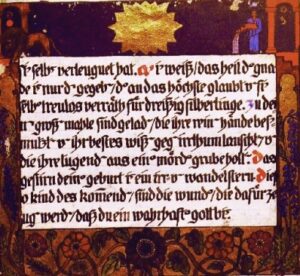 selbs verleugnet hat. weiß/das heil d' gna
de nur d' gegeb/ d' an das höchste glaubt v'
selbs treulos verräth für dreißig silberlinge. Zu dein
groß mahle sind gelad/ die ihre rein hände besch
mutzt v' ihr bestes wiß geg irrthum tauscht v'
die ihre tugend aus ein mördgrube holt. Das
gestirn dein' geburt ein irr v' wandelstern. Die
o kind des kommend/sind die wund/die dafür ze
ug werd/daß du ein wahrhaft gott bi.